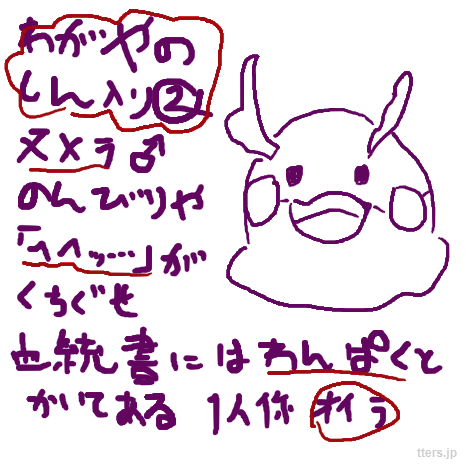 わがやの
しん入り②
ヌメラ♂
のんびりや
「へヘッ…」が
くちぐせ
血統書にはわんぱくと
かいてある 1人称 オイラ
tters.jp